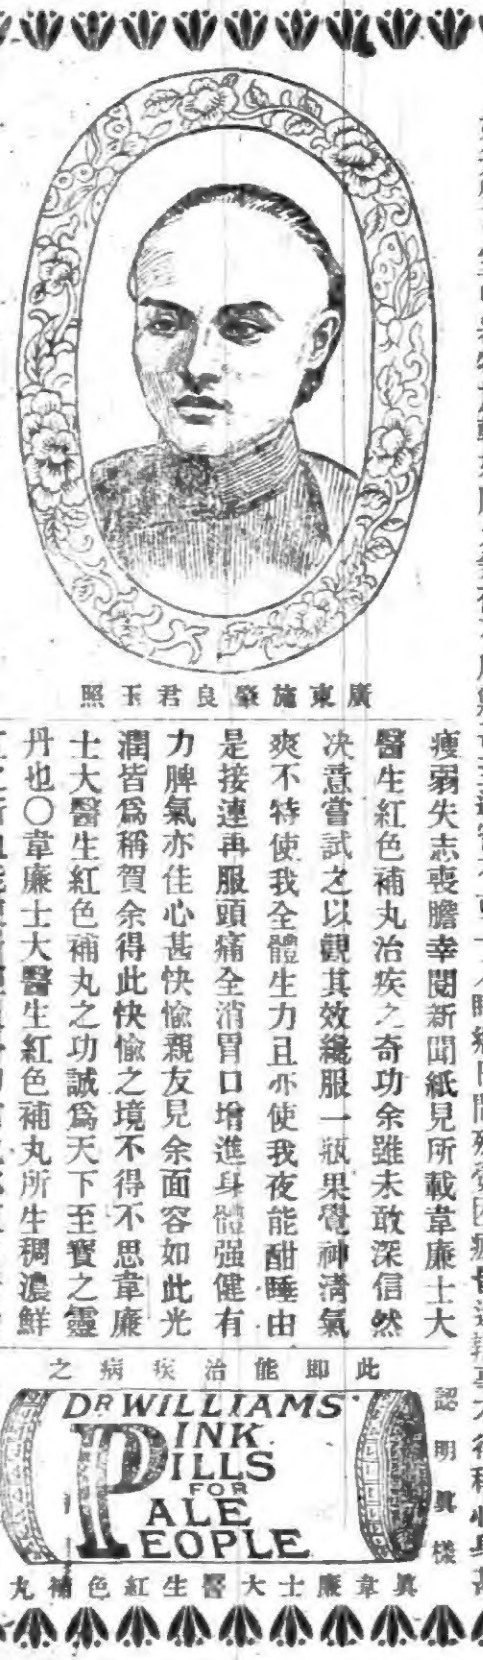 廣東施肇良君玉照
瘦弱失志喪膽幸閱新聞紙見所載韋廉士大
醫生紅色補丸治疾之奇功余雖未敢深信然
决意嘗試之以觀其效纔服一瓶果覺神淸氣
爽不特使我全體生力且亦使我夜能酣睡由
是接連再服頭痛全消胃口增進身體强健有
力脾氣亦佳心甚快愉親友見余面容如此光
潤皆爲稱賀余得此快愉之境不得不思韋廉
士大醫生紅色補丸之功誠爲天下至寳之靈
丹也〇韋廉士大醫生紅色補丸所生稠濃鮮
此即能治疾病之
認明眞樣
DR WILLIAMS'
PINK
PILLS
FOR
PALE
PEOPLE
眞韋廉士大醫生紅色補丸